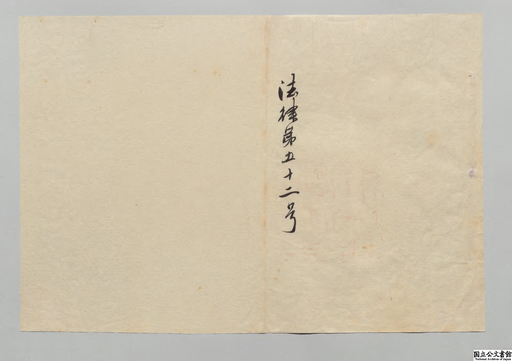 法律第五十二号
国立公文書館
National Archives of Japan